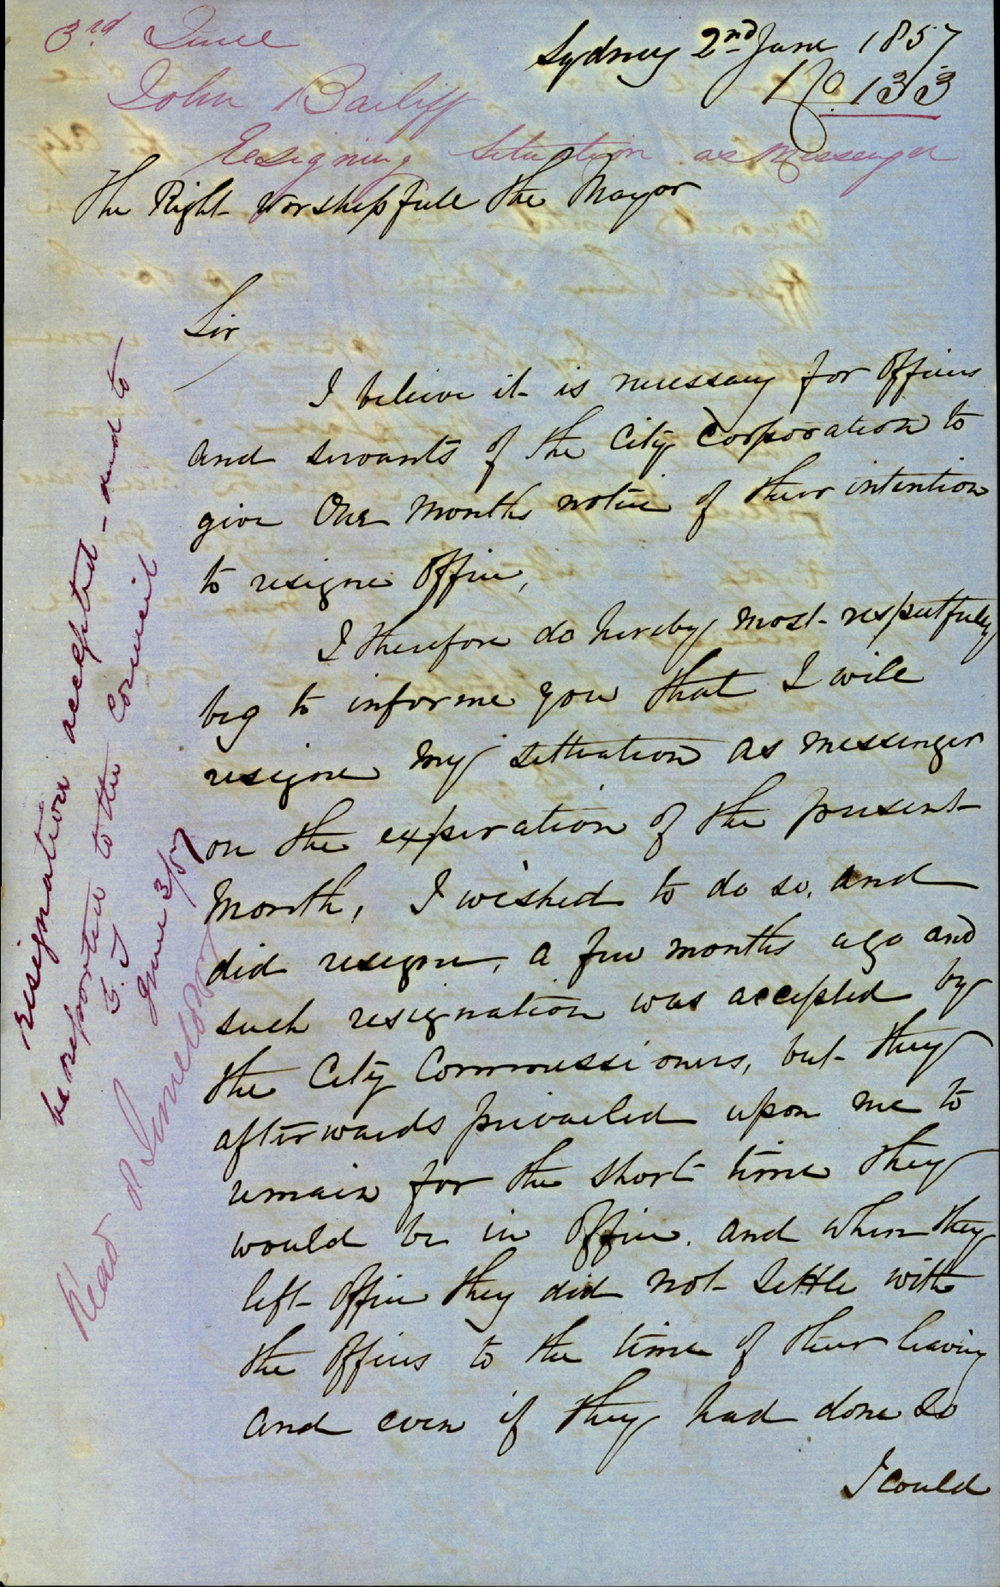 3rd June
Sydney 2nd June 1857
No. 133
John Bailiff
Resigning Situation as Messenger
The Right Worshipfull the Mayor
Sir
I believe it is necessary for Officers
and servants of the City Corporation to
give One Months notice of their intention
to resigne Office,
I therefore do hereby most respectfully
beg to informe you that I will
resigne my Sittuation as Messenger
on the expiration of the present
Month, I wished to do so, and
did resigne, a few months ago and
such resignation was accepted by
the City Commissioners, but they
afterwards prevailed upon me to
remain for the short time they
would be in Office. and when they
left Office they did not Settle with
the Officers to the time of their leaving
and even if they had done So
I could
Resignation accepted - and to
be reported to the Council
June 3/57
Read